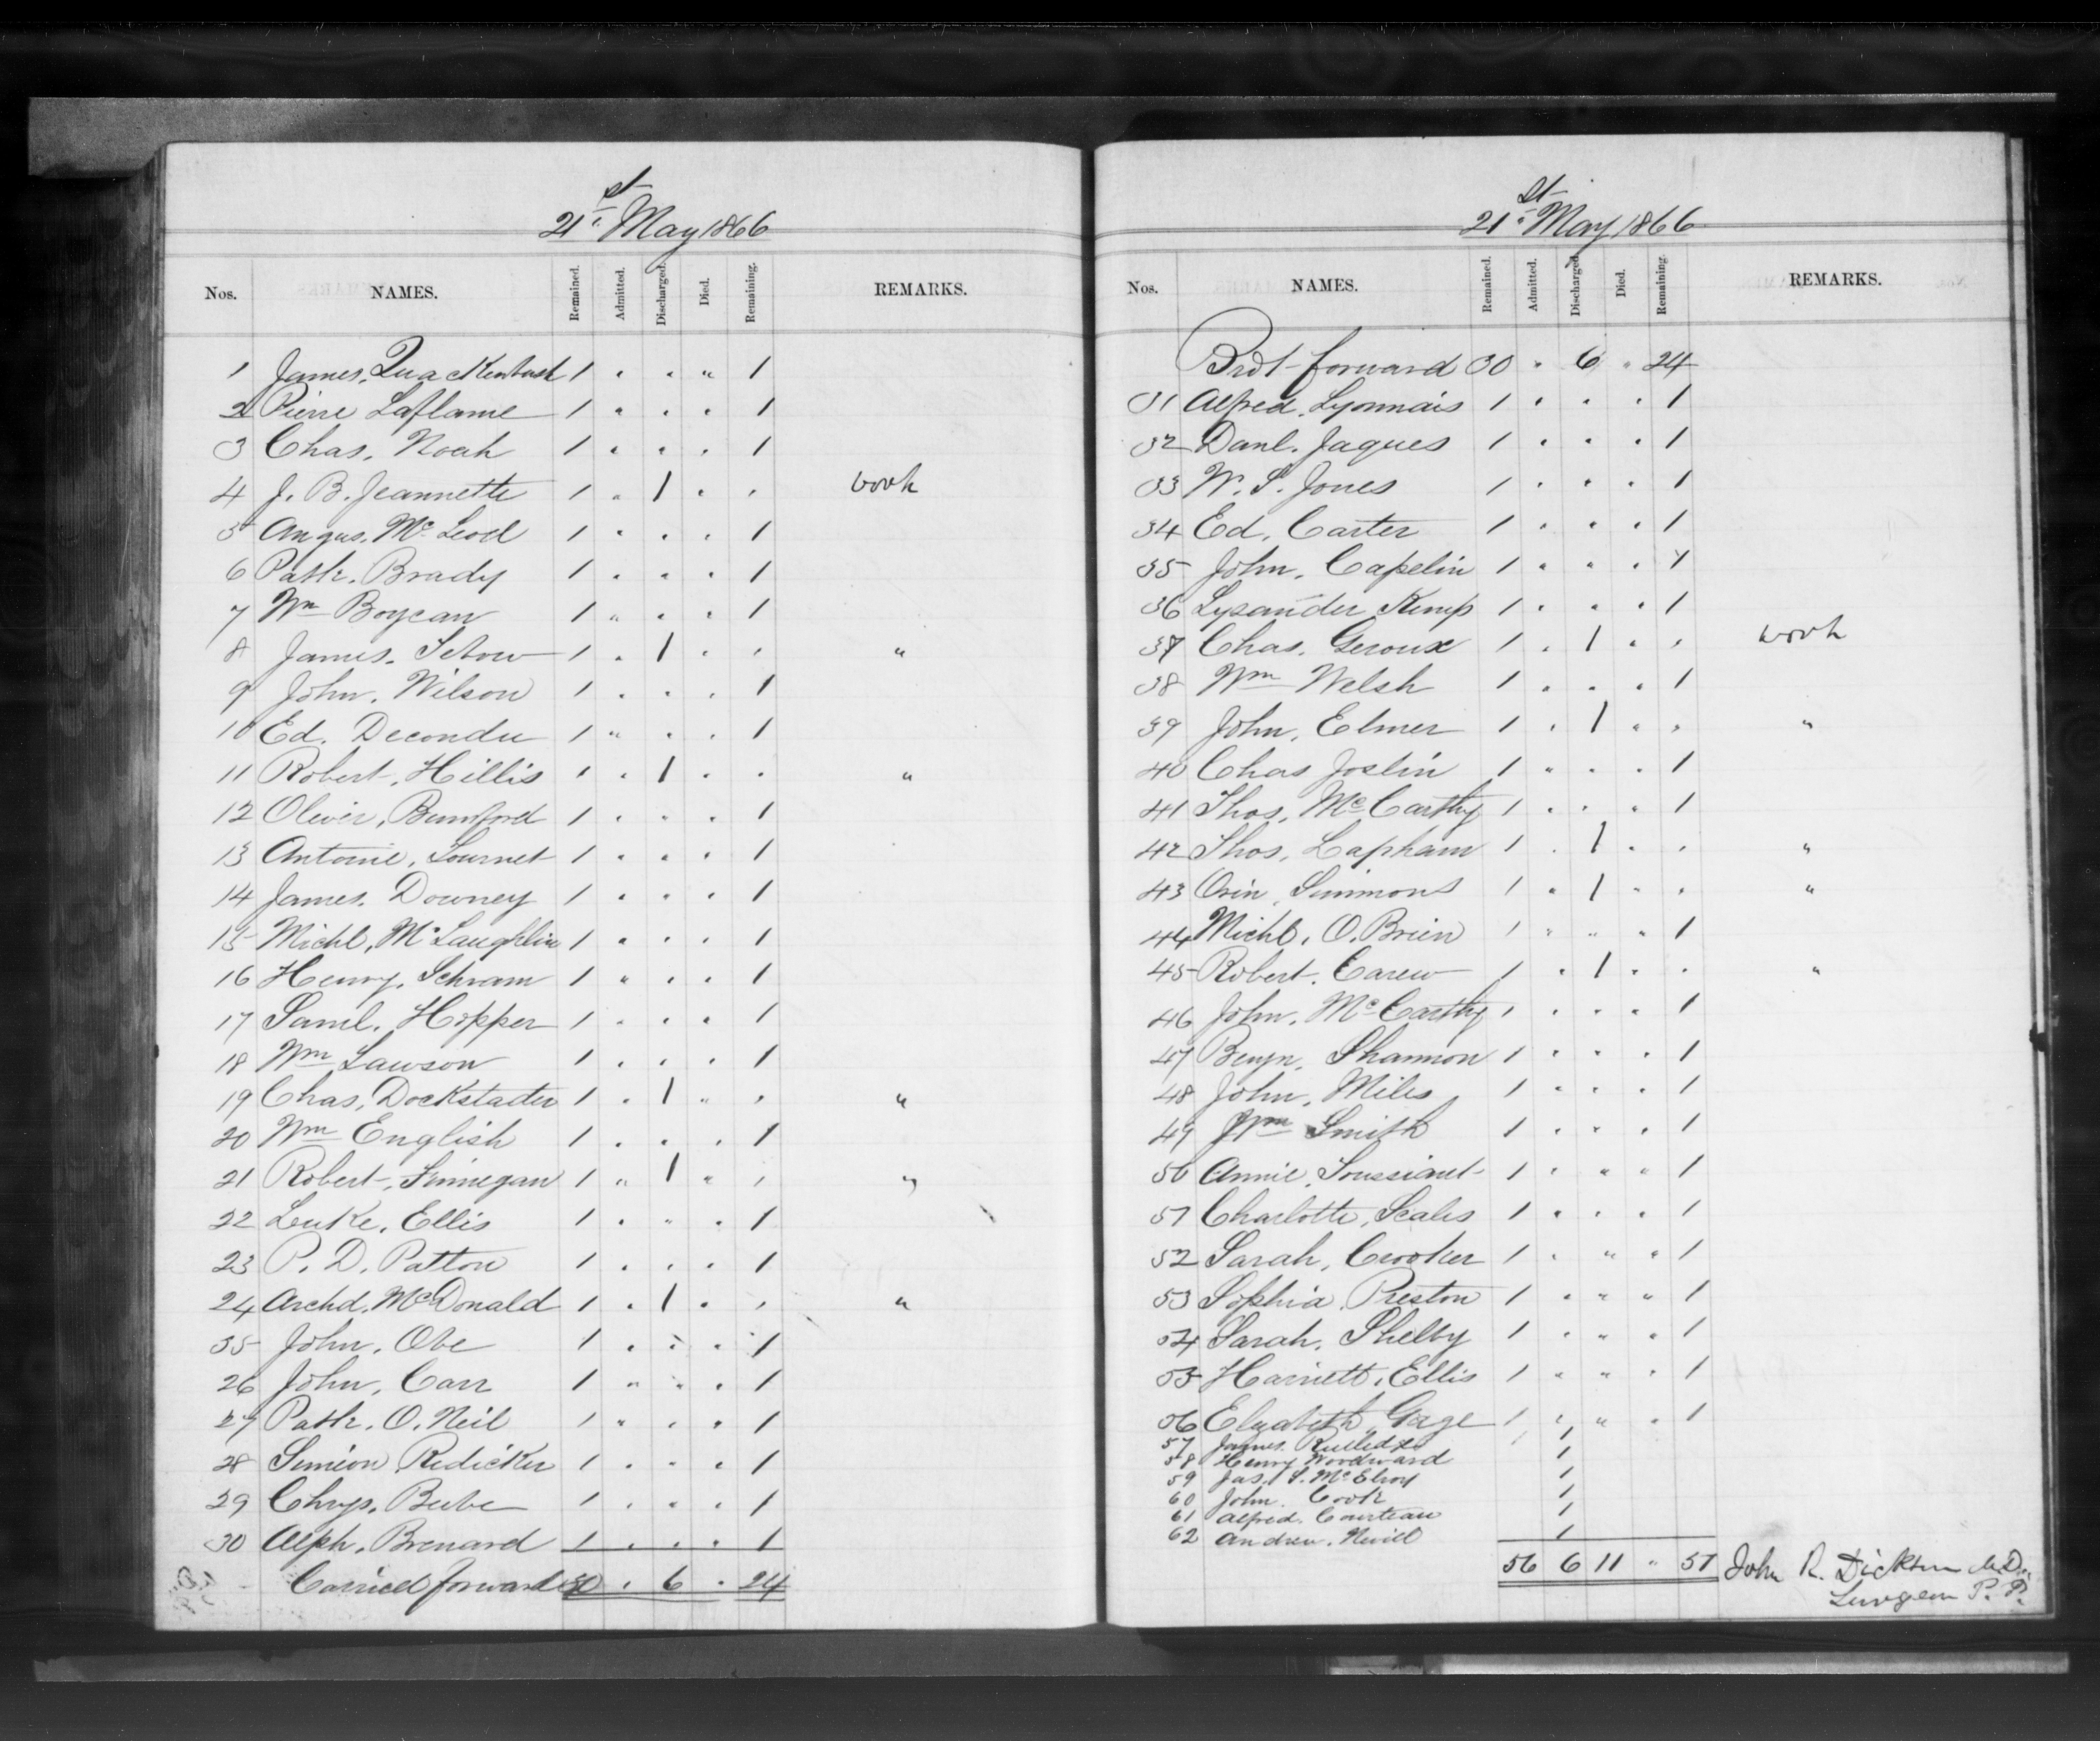 21st May 1866
Nos. NAMES. Remained. Admitted. Discharged. Died. Remaining. REMARKS.
1 James, Quackenbush 1 " " " 1
2 Pierre Laflame 1 " " " 1
3 Chas. Noah 1 " " " 1
4 J. B. Jeannette 1 " 1 " " work
5 Angus. Mc Leod 1 " " " 1
6 Patk. Brady 1 " " " 1
7 Wm Boycan 1 " " " 1
8 James. Setow 1 " 1 " " "
9 John. Wilson 1 " " " 1
10 Ed. Decondu 1 " " " 1
11 Robert. Hillis 1 " 1 " " "
12 Oliver, Bumford 1 " " " 1
13 Antoine, Tournet 1 " " " 1
14 James. Downey 1 " " " 1
15 Michl. McLaughlin 1 " " " 1
16 Henry. Schram 1 " " " 1
17 Saml. Hopper 1 " " " 1
18 Wm Lawson 1 " " " 1
19 Chas. Dockstader 1 " 1 " " "
20 Wm English 1 " " " 1
21 Robert, Finnegan 1 " 1 " " "
22 Luke. Ellis 1 " " " 1
23 P. D. Patton 1 " " " 1
24 Archd. McDonald 1 " 1 " " "
35 John. Obe 1 " " " 1
26 John. Carr 1 " " " 1
27 Patk. O. Neil 1 " " " 1
28 Simeon Redicker 1 " " " 1
29 Chrys. Beebe 1 " " " 1
30 Alph. Brenard 1 " " " 1
Carried forward 30 " 6 " 24
21st May 1866
Nos. NAMES. Remained. Admitted. Discharged. Died. Remaining. REMARKS.
Brot forward 30 " 6 " 24
31 Alfred. Lyonnais 1 " " " 1
32 Danl. Jaques 1 " " " 1
33 W. S. Jones 1 " " " 1
34 Ed. Carter 1 " " " 1
35 John. Capelin 1 " " " 1
36 Lysander Kemp 1 " " " 1
37 Chas. Geroux 1 " 1 " " work
38 Wm Welsh 1 " " " 1
39 John. Elmer 1 " 1 " " "
40 Chas Joslin 1 " " " 1
41 Thos. McCarthy 1 " " " 1
42 Thos. Lapham 1 " 1 " " "
43 Orin, Simmons 1 " 1 " " "
44 Michl. O. Brien 1 " " " 1
45 Robert. Carew 1 " 1 " " "
46 John. McCarthy 1 " " " 1
47 Benjn. Shannon 1 " " " 1
48 John. Miles 1 " " " 1
49 Wm Smith 1 " " " 1
50 Annie. Toussiant 1 " " " 1
51 Charlotte, Scales 1 " " " 1
52 Sarah, Crooker 1 " " " 1
53 Sophia. Preston 1 " " " 1
54 Sarah. Shelby 1 " " " 1
55 Harriett. Ellis 1 " " " 1
56 Elizabeth Gage 1 " " " 1
57 James. 1
58 Henry Woodward 1
59 Jas. S. McElroy 1
60 John. Cook 1
61 Alfred. Courteau 1
62 Andrew. Nevill 1
56 6 11 " 51 John R. Dickson M.D.
Surgeon P. P.